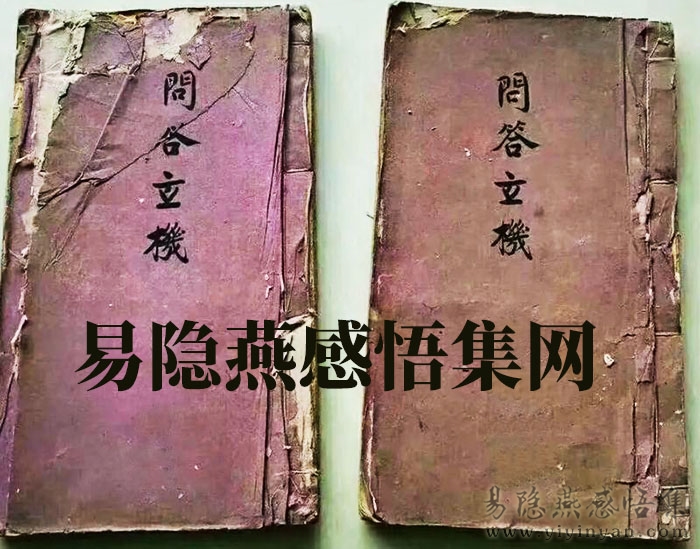 問答立機
問答立機
易隐燕感悟集网
易隐燕感悟集
www.yiyinyan.com